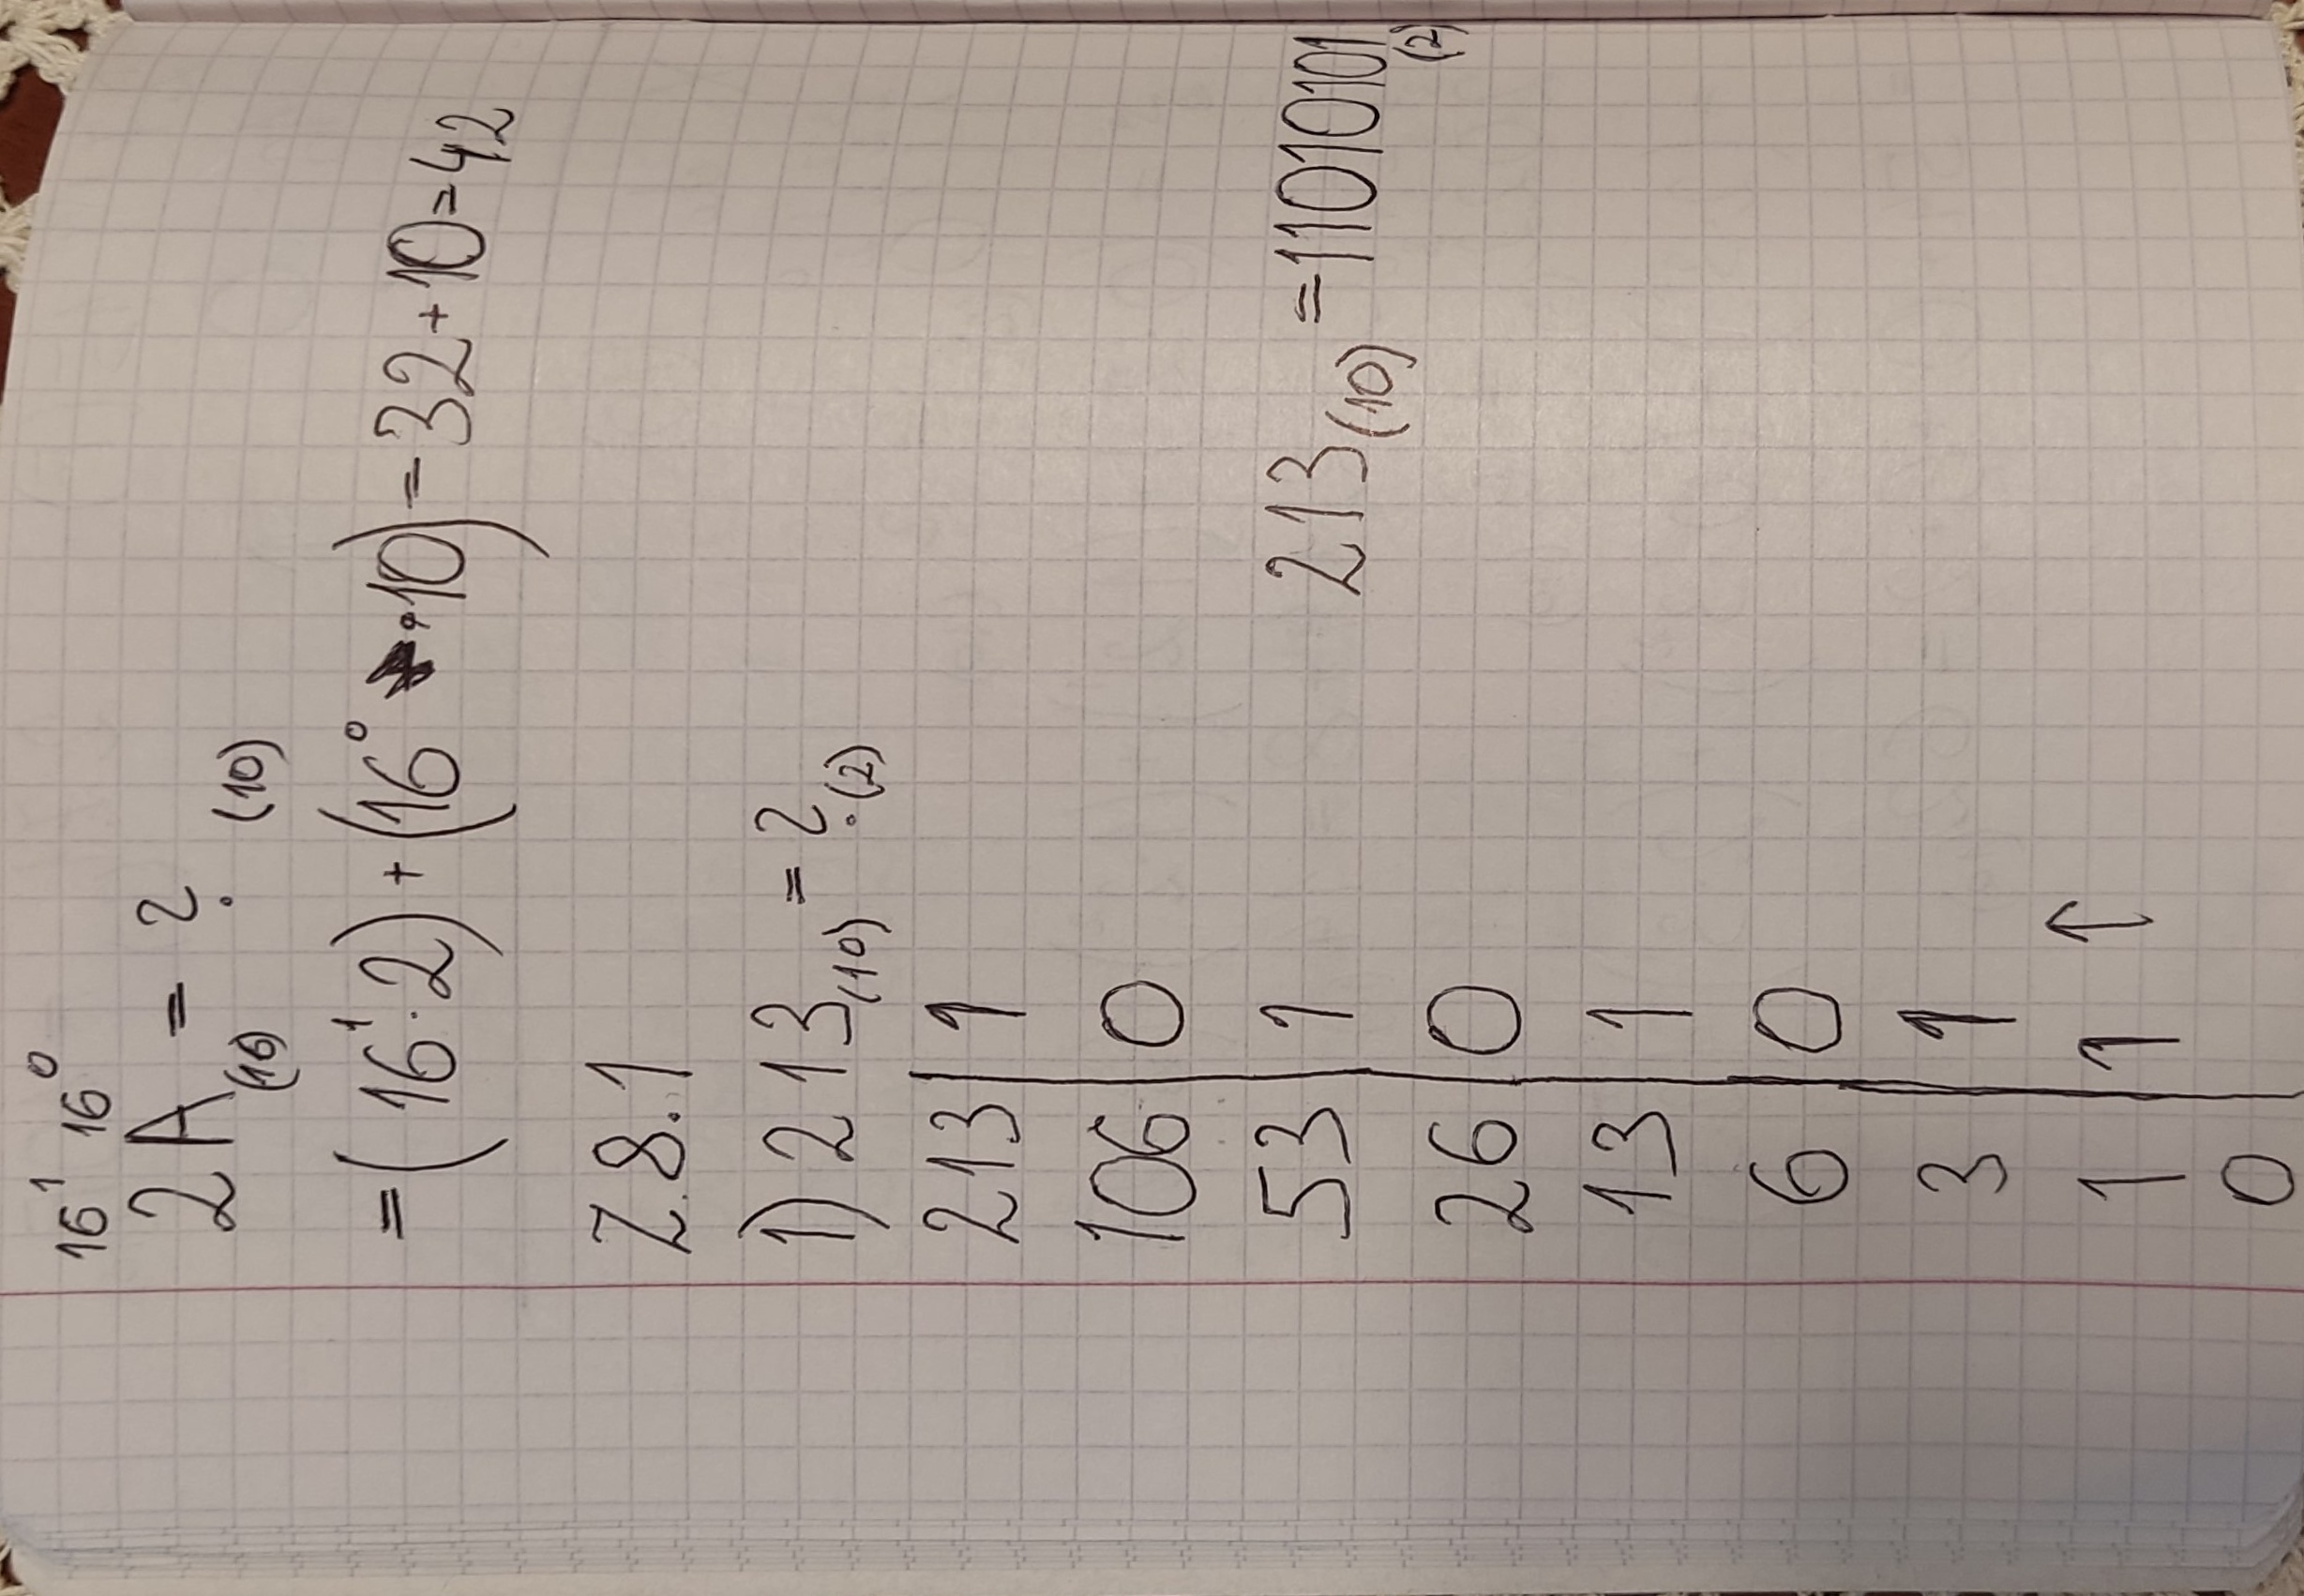 16¹ 16⁰
2A₍₁₆₎ = ?₍₁₀₎
= (16¹·2) + (16⁰·10) = 32 + 10 = 42
Z.8.1
1) 213₍₁₀₎ = ?₍₂₎
213 | 1
106 | 0
53 | 1
26 | 0
13 | 1
6 | 0
3 | 1
1 | 1 ↑
0 |
213₍₁₀₎ = 11010101₍₂₎